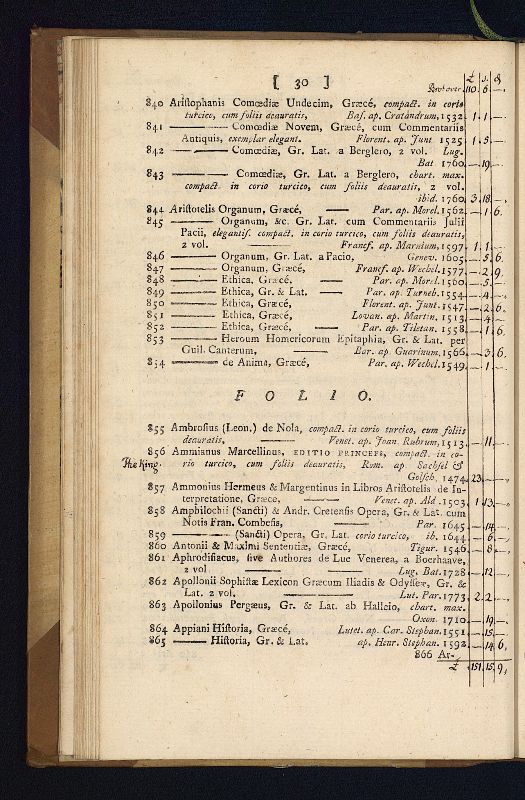 £ s. d
[ 30 ] Brot over 110 . 6 . —
840 Aristophanis Comœdiæ Undecim, Græcé, compact. in corio
turcico, cum foliis deauratis, Bas. ap. Cratandrum, 1532 — 1 . 1 . —
841 ——— Comœdiæ Novem, Græcé, cum Commentariis
Antiquis, exemplar elegant. Florent. ap. Junt 1525 1 . 5 . —
842 ——— Comœdiæ, Gr. Lat. a Berglero, 2 vol. Lug.
Bat 1760 — 19 . —
843 ——— Comœdiæ, Gr. Lat. a Berglero, chart. max.
compact. in corio turcico, cum foliis deauratis, 2 vol.
ibid. 1760 3 . 18 . —
844 Aristotelis Organum, Græcé, —— Par. ap. Morel. 1562 — 1 . 6
845 ——— Organum, &c. Gr. Lat. cum Commentariis Julii
Pacii, elegantiss. compact. in corio turcico, cum foliis deauratis,
2 vol. ——— Francf. ap. Marnium, 1597 1 . 1 . —
846 ——— Organum, Gr. Lat. a Pacio, Genev. 1605 — 5 . 6
847 ——— Organum, Græcé, Francf. ap. Wechel. 1577 — 2 . 9
848 ——— Ethica, Græcé. —— Par. ap. Morel. 1560 — 5 . —
849 ——— Ethica, Gr. & Lat. —— Par. ap. Turneb. 1554 — 4 . —
850 ——— Ethica, Græcé, Florent. ap. Junt. 1547 — 2 . 6
851 ——— Ethica, Græcé, Lovan. ap. Martin. 1513 — 4 . —
852 ——— Ethica, Græcé, —— Par. ap. Tiletan. 1558 — 1 . 6
853 ——— Heroum Homericorum Epitaphia, Gr. & Lat. per
Guil. Canterum, —— Bar. ap. Guarinum, 1566 — 3 . 6
854 ——— de Anima, Græcé, Par. ap. Wechel. 1549 — 1 . —
FOLIO.
855 Ambrosius (Leon.) de Nola, compact. in corio turcico, cum foliis
deauratis, ——— Venet. ap. Joan. Rubrum, 1513 — 11 . —
856 Ammianus Marcellinus, EDITIO PRINCEPS, compact. in co-
The King. rio turcico, cum foliis deauratis, Rom. ap Sachsel &
Golsch. 1474 23 — —
857 Ammonius Hermeus & Margentinus in Libros Aristotelis de In-
terpretatione, Græce. —— Venet. ap. Ald. 1503 1 . 13 . —
858 Amphilochii (Sancti) & Andr. Cretensis Opera, Gr. & Lat. cum
Notis Fran. Combesis, —— Par. 1645 — 14 . —
859 ——— (Sancti) Opera, Gr. Lat. corio turcico, ib. 1644 — 6 . —
860 Antonii & Maximi Sententiæ, Græcé, Tigur. 1546 — 8 . —
861 Aphrodisiacus, sive Authores de Lue Venerea, a Boerhaave,
2 vol Lug. Bat. 1728 — 12 . —
862 Apollonii Sophistæ Lexicon Græcum Iliadis & Odysseæ, Gr. &
Lat. 2 vol. ——— Lut. Par. 1773 2 . 2 . —
863 Apollonius Pergæus, Gr. & Lat. ab Halleio, chart. max.
Oxon. 1710 — 19 . —
864 Appiani Historia, Græcé, Lutet. ap. Car. Stephan. 1551 — 15 . —
865 ——— Historia, Gr. & Lat. ap. Henr. Stephan. 1592 — 14 . 6
866 Ar-
£ 151 . 15 . 9